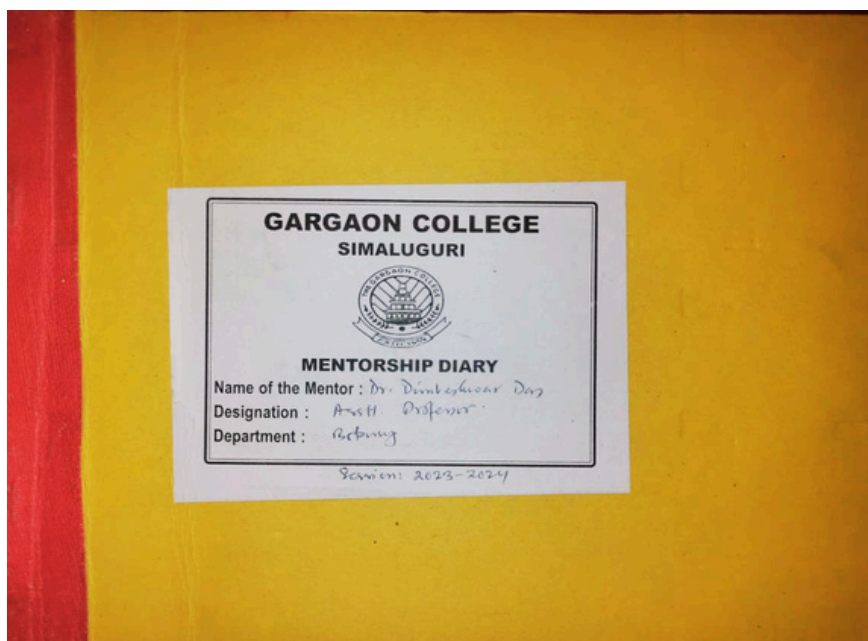 GARGAON COLLEGE
SIMALUGURI
THE GARGAON COLLEGE
MENTORSHIP DIARY
Name of the Mentor : Dr. Dimbeshwar Das
Designation : Asstt. Professor
Department : Botany
Session: 2023-2024